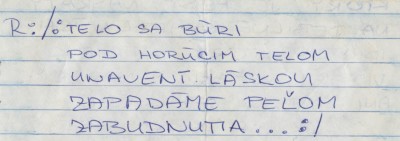 R:/: TELO SA BÚRI
POD HORÚCIM TELOM
UNAVENÍ LÁSKOU
ZAPADÁME PEĽOM
ZABUDNUTIA...:/